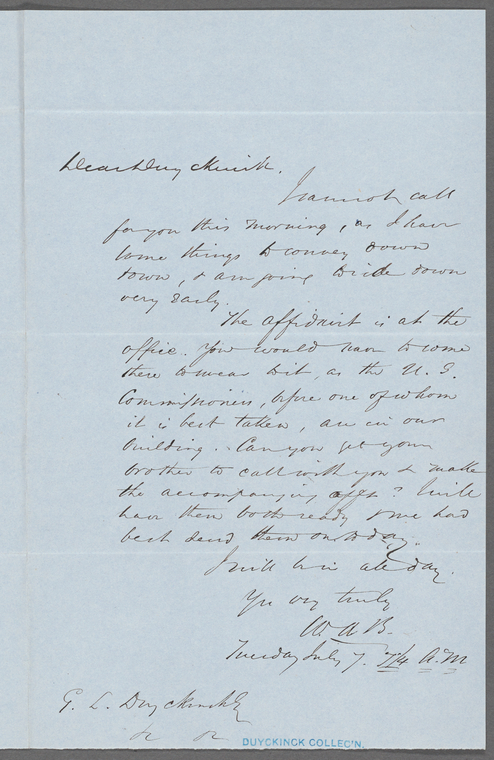 Dear Duyckinck.
I cannot call
for you this morning, as I have
some things to convey down
town, & am going to ride down
very early.
The affidavit is at the
office. You would have to come
there to swear to it, as the U. S.
Commissioners, before one of whom
it is best taken, are in our
building. Can you get your
brother to call with you & make
the accompanying afft? I will
have them both ready & we had
best send them on to day.
I will be in all day.
Yrs very truly
W A B.
Tuesday July 7. 7¼ A.M
G. L. Duyckinck
DUYCKINCK COLLEC'N.